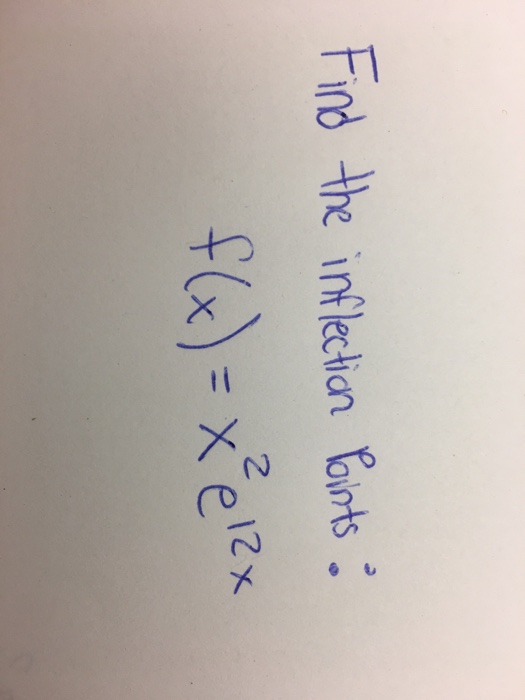 Find the inflection Points:
f(x) = x²e¹²ˣ